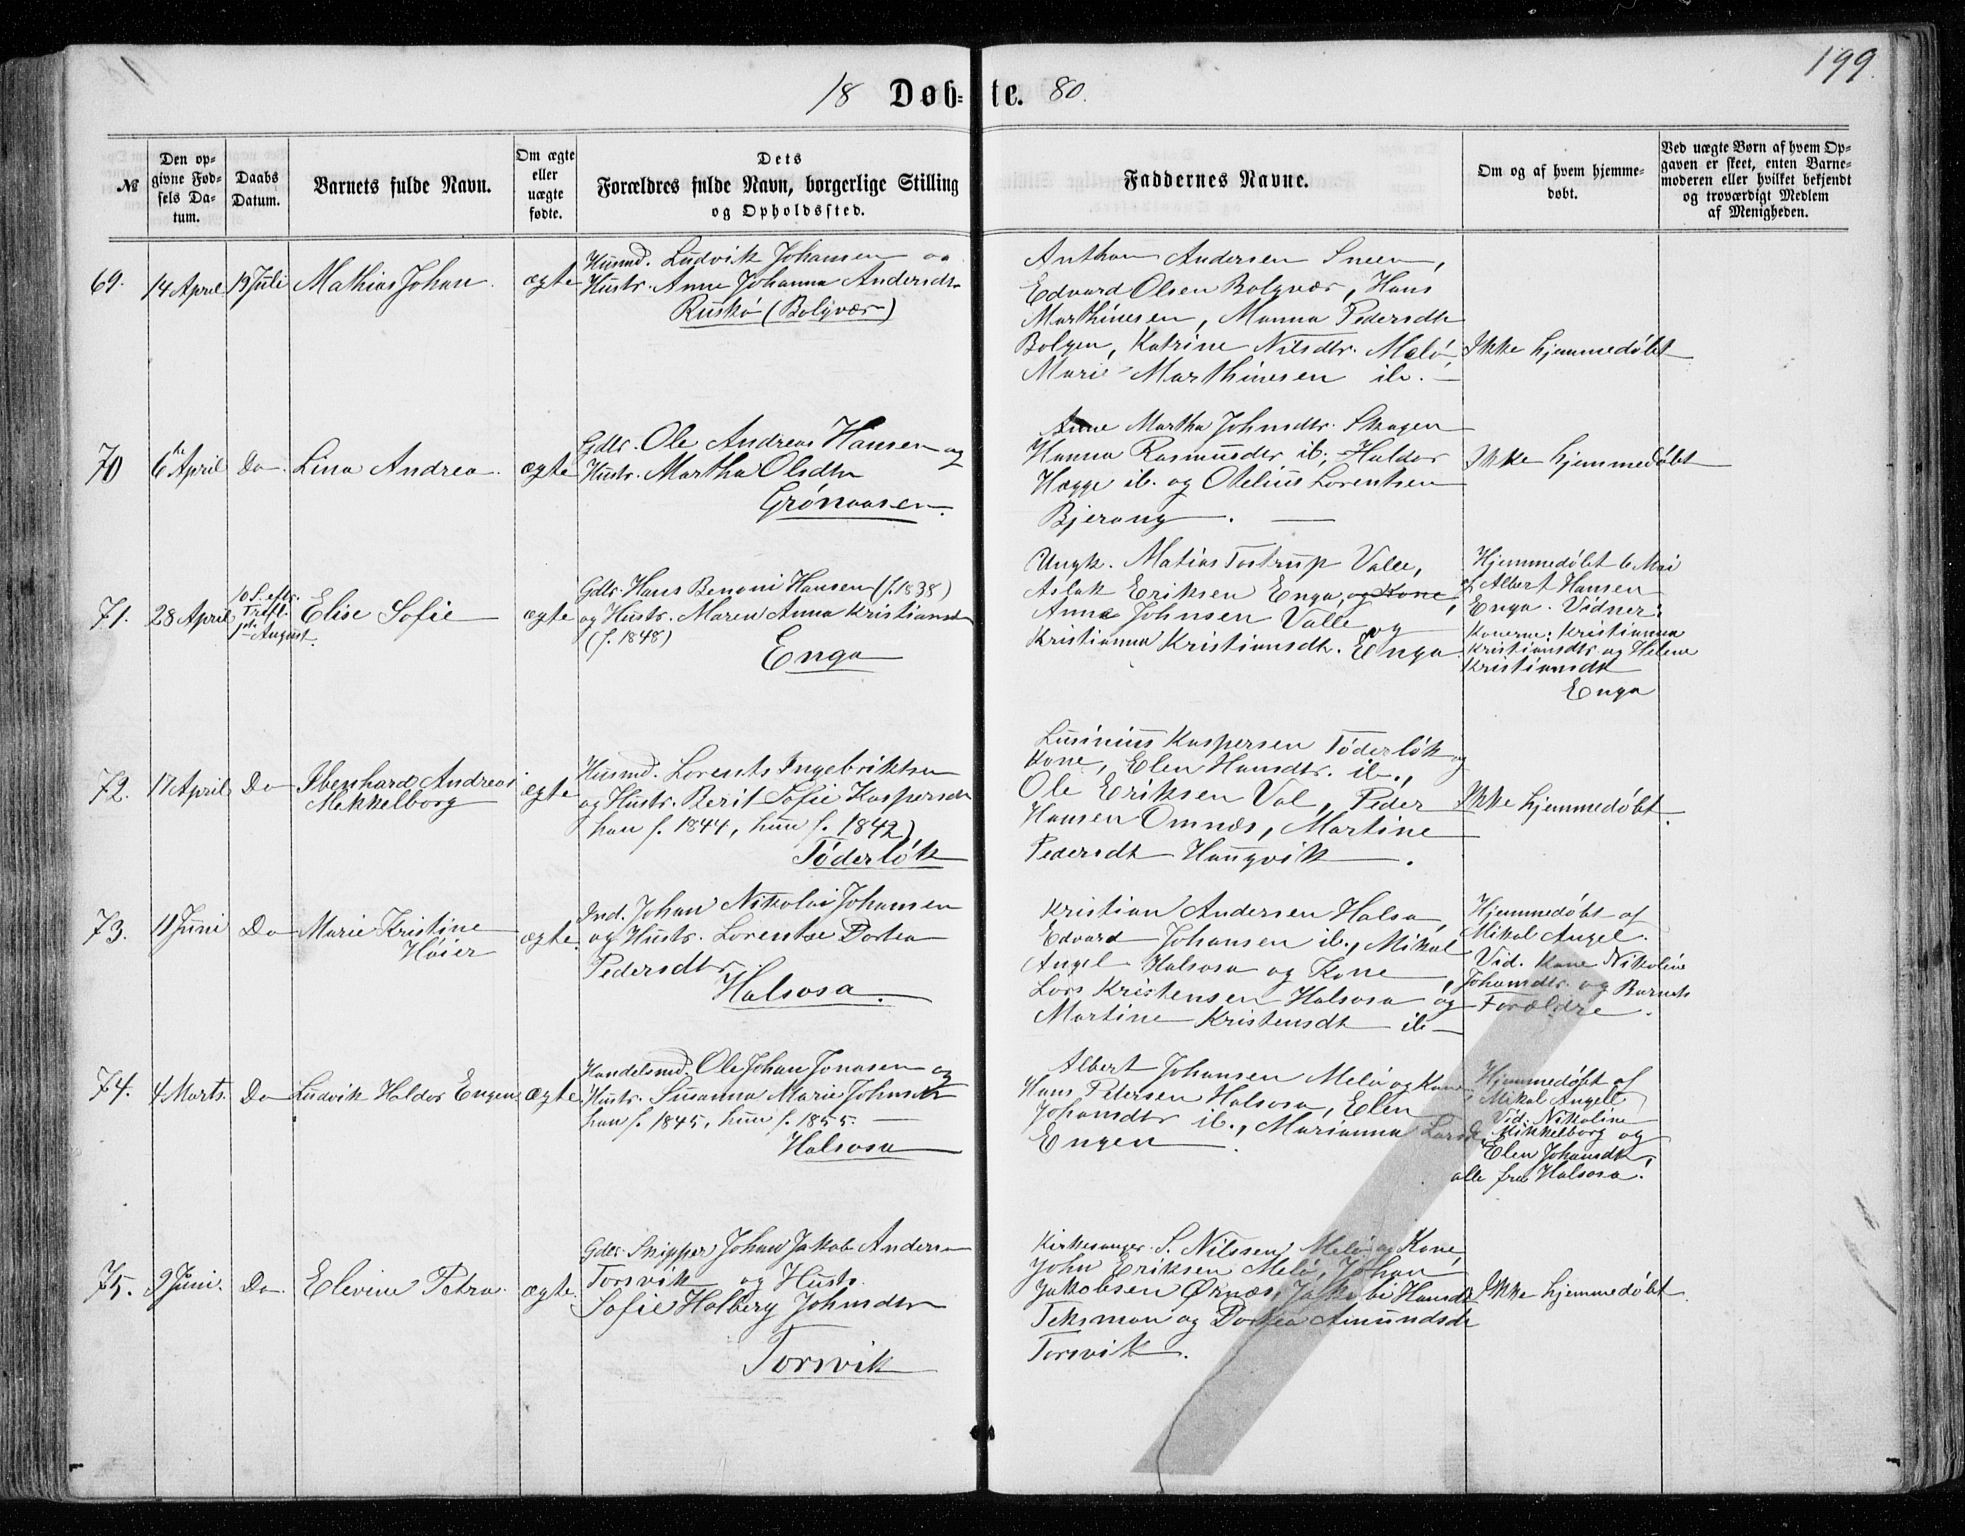 199.
18 Døb=te. 80.
№
Den op-
givne Fød-
sels Da-
tum.
Daabs
Datum.
Barnets fulde Navn.
Om ægte
eller
uægte
fødte.
Dets
Forældres fulde Navn, borgerlige Stilling
og Opholdssted.
Faddernes Navne.
Om og af hvem hjemme-
døbt.
Ved uægte Børn af hvem Op-
gaven er skeet, enten Barne-
moderen eller hvilket bekjendt
og troværdigt Medlem
af Menigheden.
69.
14 April
19 Juli
Mathias Johan.
ægte
Husmd. Ludvik Johansen og
Hustr. Anne Johanna Andersdtr
Ruskø (Bolgvær)
Anthon Andersen Sneen,
Edvard Olsen Bolgvær, Hans
Marthinesen, Manna Pedersdtr
Bolgen, Katrine Nilsdtr. Melø,
Marie Marthinesen ib. —
Ikke hjemmedøbt
70
6te April
Do.
Lina Andrea.
ægte
Gdbr. Ole Andreas Hansen og
Hustr. Martha Olsdtr
Grønaasen.
Anne Martha Johnsdtr. Skagen
Hanna Rasmusdtr ib., Haldor
Hægge ib. og Otelius Lorentsen
Bjerang. —
Ikke hjemmedøbt
71.
28 April
10 S. eftr.
Tref.
1ste August.
Elise Sofie
ægte
Gdbr. Hans Benoni Hansen (f. 1838)
og Hustr. Maren Anna Kristiansdtr
(f. 1848)
Enga
Ungk. Matias Tostrup Valle,
Aslak Eriksen Enga, og Kone,
Anna Johnsen Valle og
Kristianna Kristiansdtr. Enga
Hjemmedøbt 6 Mai
af Albert Hansen
Enga. Vidner:
Konerne: Kristianna
Kristiansdtr og Helene
Kristiansdtr
Enga
72.
17 April
Do
Ibenhard Andreas
Mekkelborg
ægte
Husmd. Lorents Ingebriktsen
og Hustr. Berit Sofie Kaspersdtr
han f. 1844, hun f. 1842)
Tøderløk
Lusinius Kaspersen Tøderløk og
Kone, Elen Hansdtr. ib.,
Ole Eriksen Val, Peder
Hansen Omnæs, Martine
Pedersdtr Haugvik.
Ikke hjemmedøbt.
73.
11 Juni
Do
Marie Kristine
Høier
ægte.
Ind. Johan Nikolai Johansen
og Hustr. Lorentse Dortea
Pedersdtr.
Halsosa.
Kristian Andersen Halsa,
Edvard Johansen ib., Mikal
Angel Halsosa og Kone,
Lars Kristensen Halsosa og
Martine Kristensdtr ib —
Hjemmedøbt af
Mikal Angel.
Vid. Kone Nikoline
Johansdtr. og Barnets
Forældre.
74.
4 Marts.
Do
Ludvik Haldor Engen
ægte
Handelsmd. Ole Johan Jonasen og
Hustr. Susanna Marie Johnsdtr
han f. 1845, hun f. 1855. —
Halsosa
Albert Johansen Melø og Kone,
Hans Petersen Halsosa, Elen
Johansdtr ib., Marianna Larsdtr
Engen.
Hjemmedøbt af
Mikal Angell
Vid. Nikoline
Mikkelborg og
Elen Johansdtr,
alle fra Halsosa.
75.
9 Juni.
Do.
Elevine Petra.
ægte.
Gdbr. Skipper Johan Jakob Andersen
Torsvik og Hustr.
Sofie Holberg Johnsdtr
Torsvik
Kirkesanger S. Nilssen Melø og Kone,
John Eriksen Melø, Johan
Jakobsen Ørnæs, Jakobi Hansdtr
Teksmon og Dortea Amundsdtr
Torsvik.
Ikke hjemmedøbt.